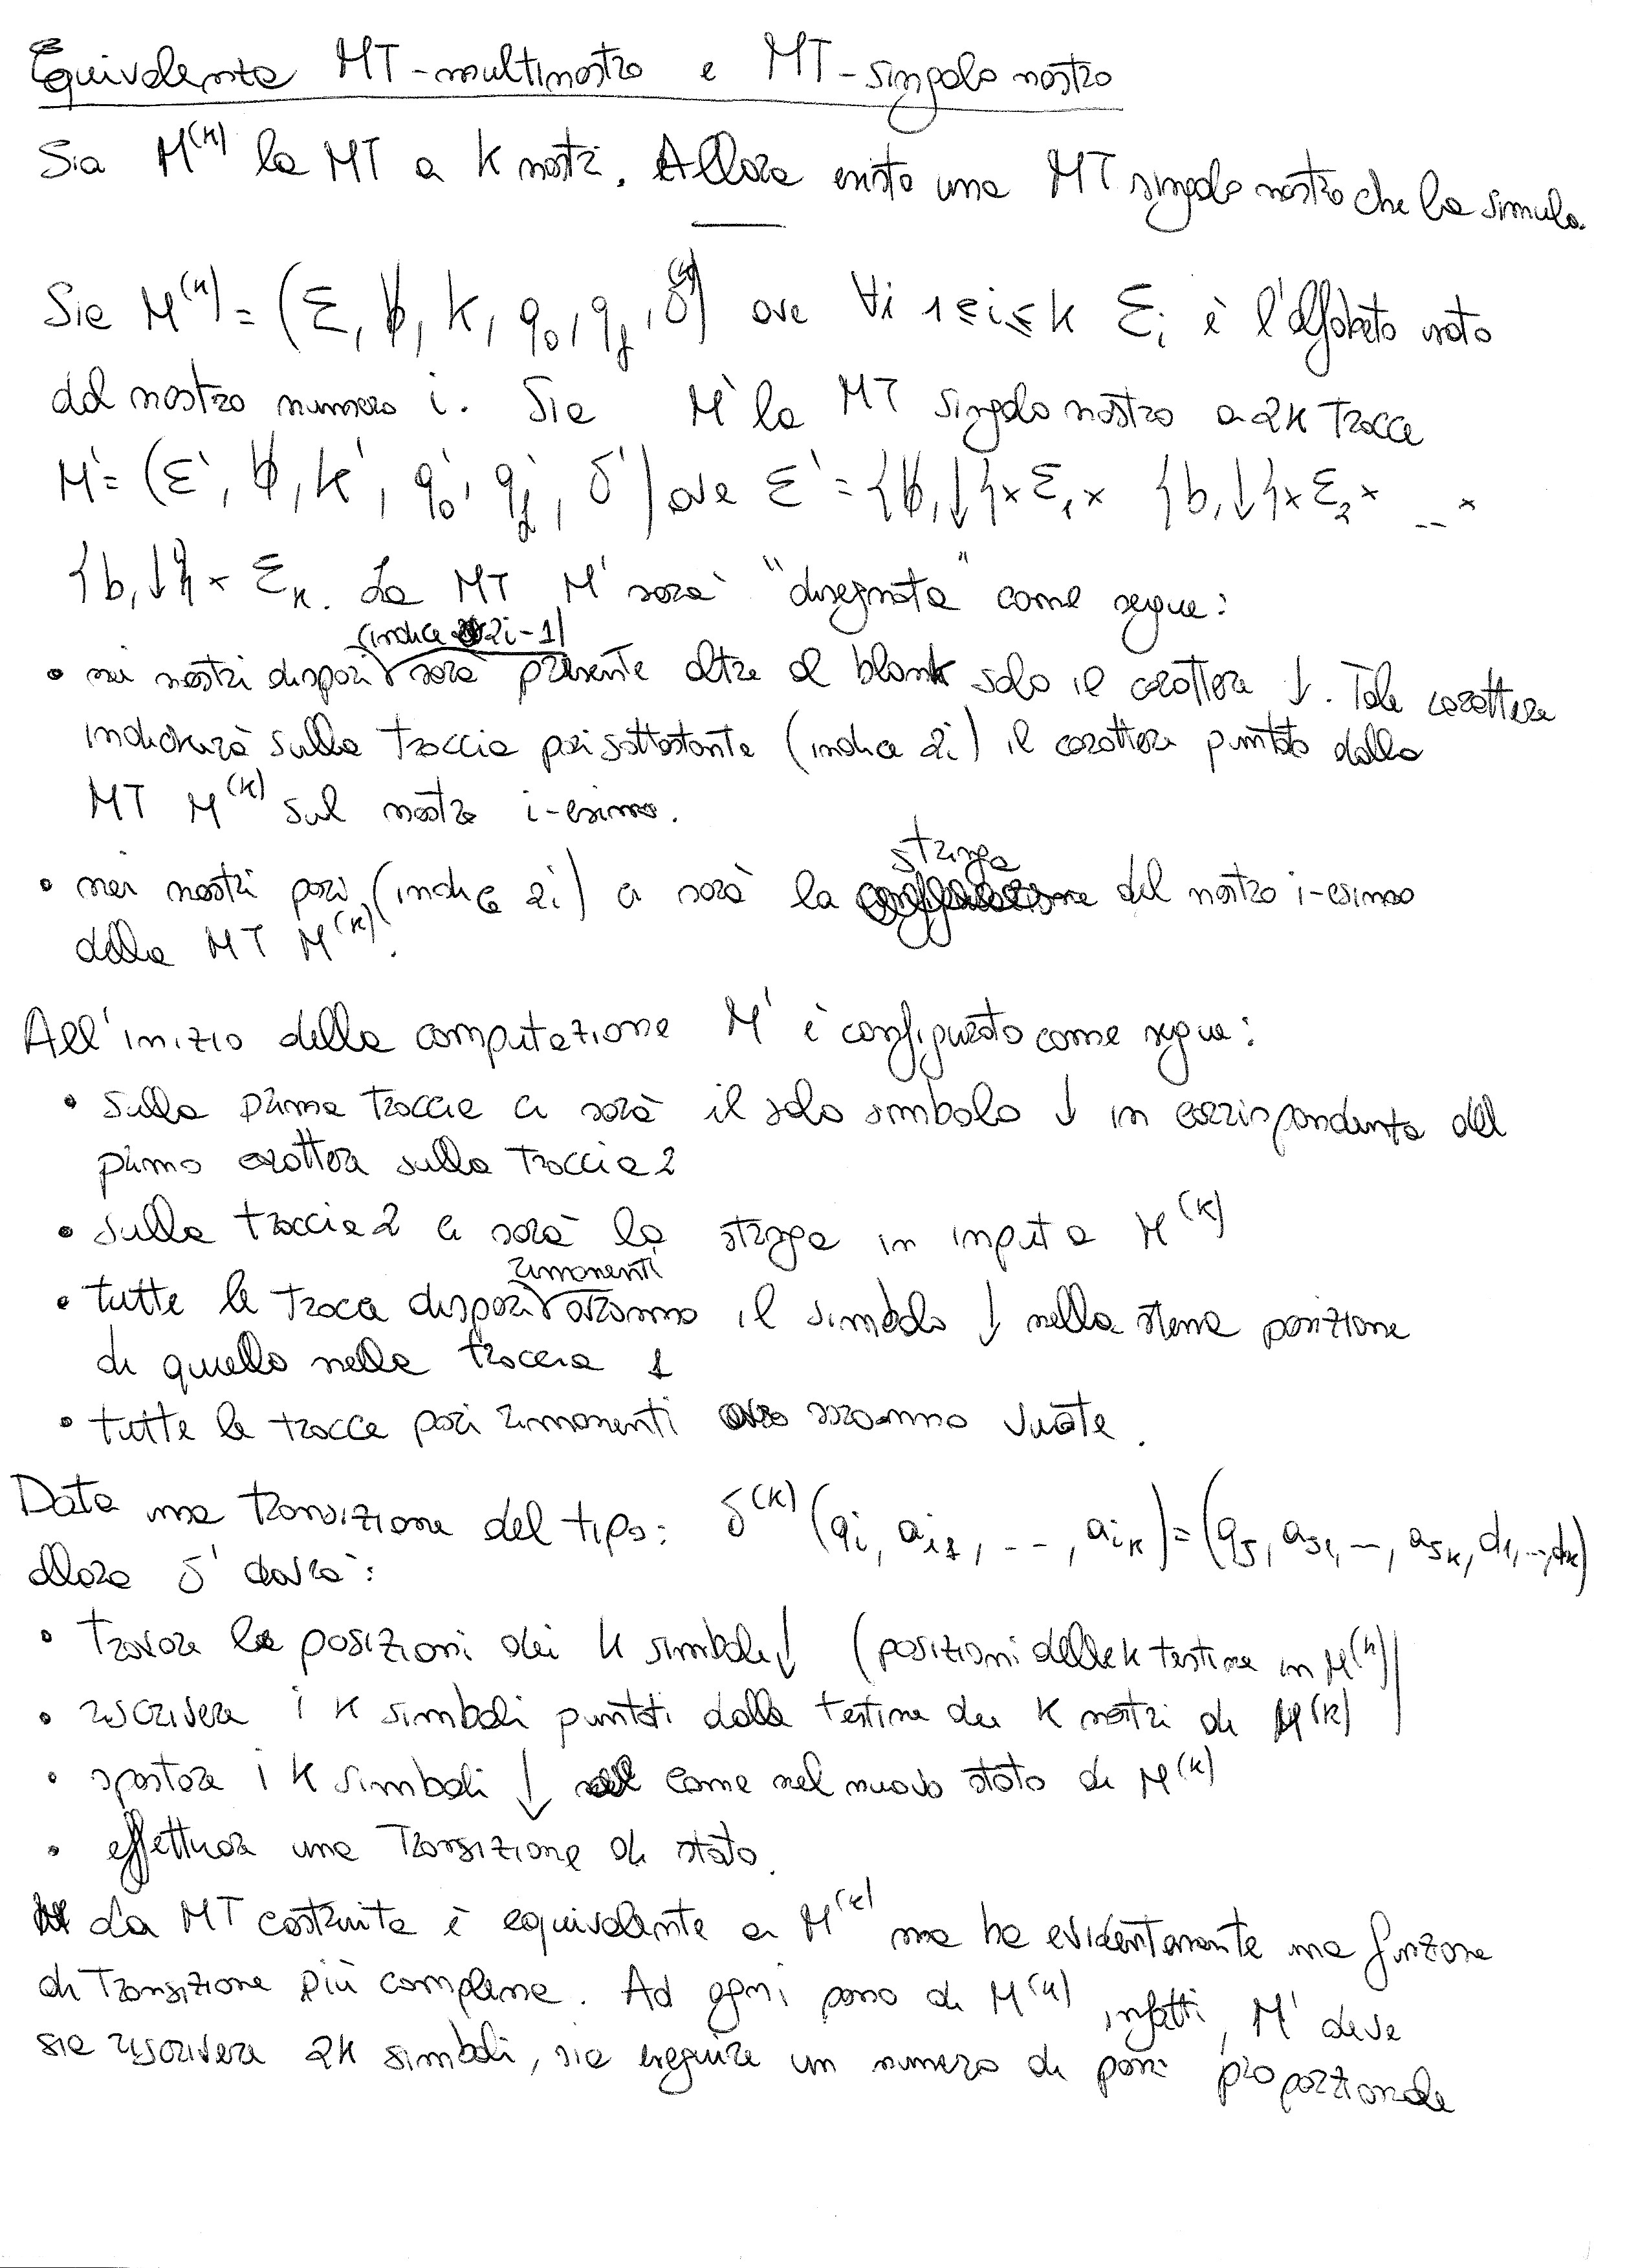 Equivalenza MT-multinastro e MT-singolo nastro
Sia M^(k) la MT a k nastri. Allora esiste una MT singolo nastro che la simula.
Sia M^(k) = (Σ, ƀ, K, q0, qf, δ^(k)) ove ∀i 1≤i≤k Σi è l'alfabeto usato
dal nastro numero i. Sia M' la MT singolo nastro a 2k tracce
M' = (Σ', ƀ, K', q0', qf', δ') ove Σ' = {ƀ,↓}×Σ1× {b,↓}×Σ2× ... ×
{b,↓}×Σk. La MT M' sarà "disegnata" come segue:
• nei nastri dispari (indice 2i-1) sarà presente oltre al blank solo il carattere ↓. Tale carattere
indicherà sulla traccia pari sottostante (indice 2i) il carattere puntato dalla
MT M^(k) sul nastro i-esimo.
• nei nastri pari (indice 2i) ci sarà la stringa del nastro i-esimo
della MT M^(k).
All'inizio della computazione M' è configurato come segue:
• sulla prima traccia ci sarà il solo simbolo ↓ in corrispondenza del
primo carattere sulla traccia 2
• sulla traccia 2 ci sarà la stringa in input a M^(k)
• tutte le tracce dispari rimanenti avranno il simbolo ↓ nella stessa posizione
di quello nella traccia 1
• tutte le tracce pari rimanenti saranno vuote.
Data una transizione del tipo: δ^(k)(qi, ai1, ..., aik) = (qj, aj1, ..., ajk, d1, ..., dk)
allora δ' dovrà:
• trovare le posizioni dei k simboli ↓ (posizioni delle k testine in M^(k))
• riscrivere i k simboli puntati dalle testine dei k nastri di M^(k)
• spostare i k simboli ↓ come nel nuovo stato di M^(k)
• effettuare una transizione di stato.
La MT costruita è equivalente a M^(k) ma ha evidentemente una funzione
di transizione più complessa. Ad ogni passo di M^(k) infatti, M' deve
sia riscrivere 2k simboli, sia eseguire un numero di passi proporzionale